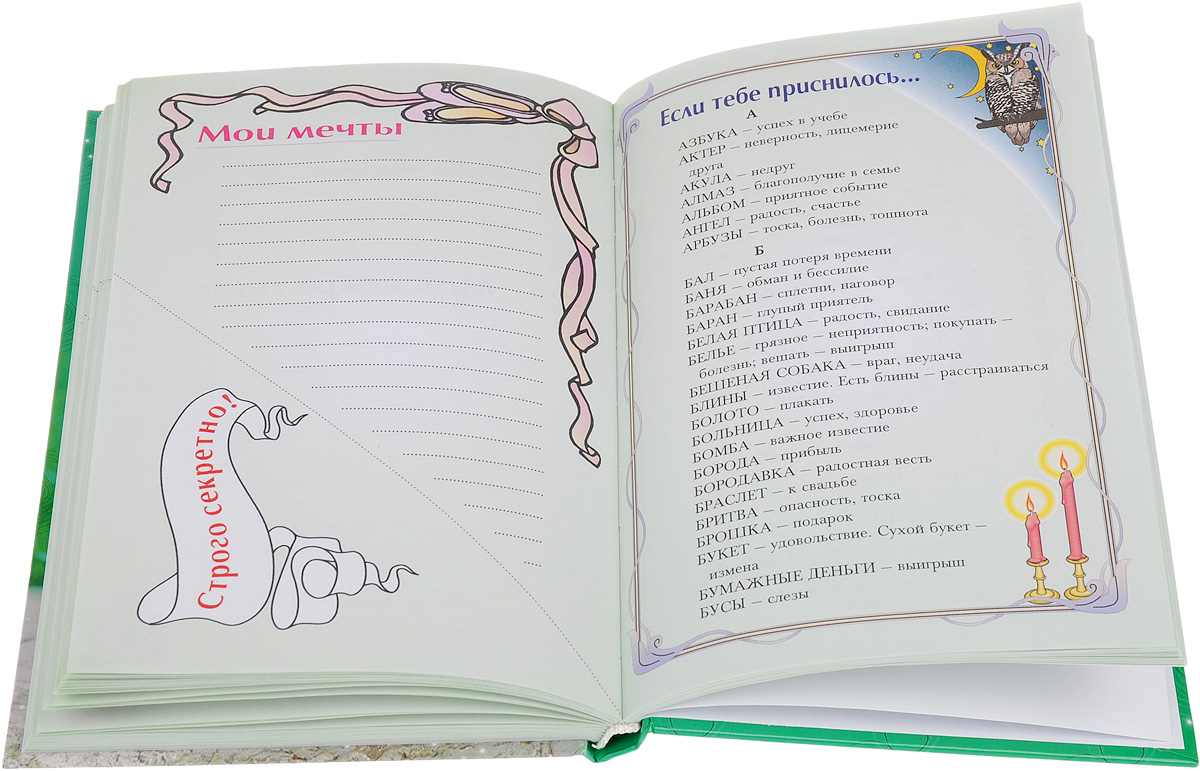 Мои мечты
Строго секретно!
Если тебе приснилось...
А
АЗБУКА – успех в учебе
АКТЕР – неверность, лицемерие
друга
АКУЛА – недруг
АЛМАЗ – благополучие в семье
АЛЬБОМ – приятное событие
АНГЕЛ – радость, счастье
АРБУЗЫ – тоска, болезнь, тошнота
Б
БАЛ – пустая потеря времени
БАНЯ – обман и бессилие
БАРАБАН – сплетни, наговор
БАРАН – глупый приятель
БЕЛАЯ ПТИЦА – радость, свидание
БЕЛЬЕ – грязное – неприятность; покупать –
болезнь; вешать – выигрыш
БЕШЕНАЯ СОБАКА – враг, неудача
БЛИНЫ – известие. Есть блины – расстраиваться
БОЛОТО – плакать
БОЛЬНИЦА – успех, здоровье
БОМБА – важное известие
БОРОДА – прибыль
БОРОДАВКА – радостная весть
БРАСЛЕТ – к свадьбе
БРИТВА – опасность, тоска
БРОШКА – подарок
БУКЕТ – удовольствие. Сухой букет –
измена
БУМАЖНЫЕ ДЕНЬГИ – выигрыш
БУСЫ – слезы